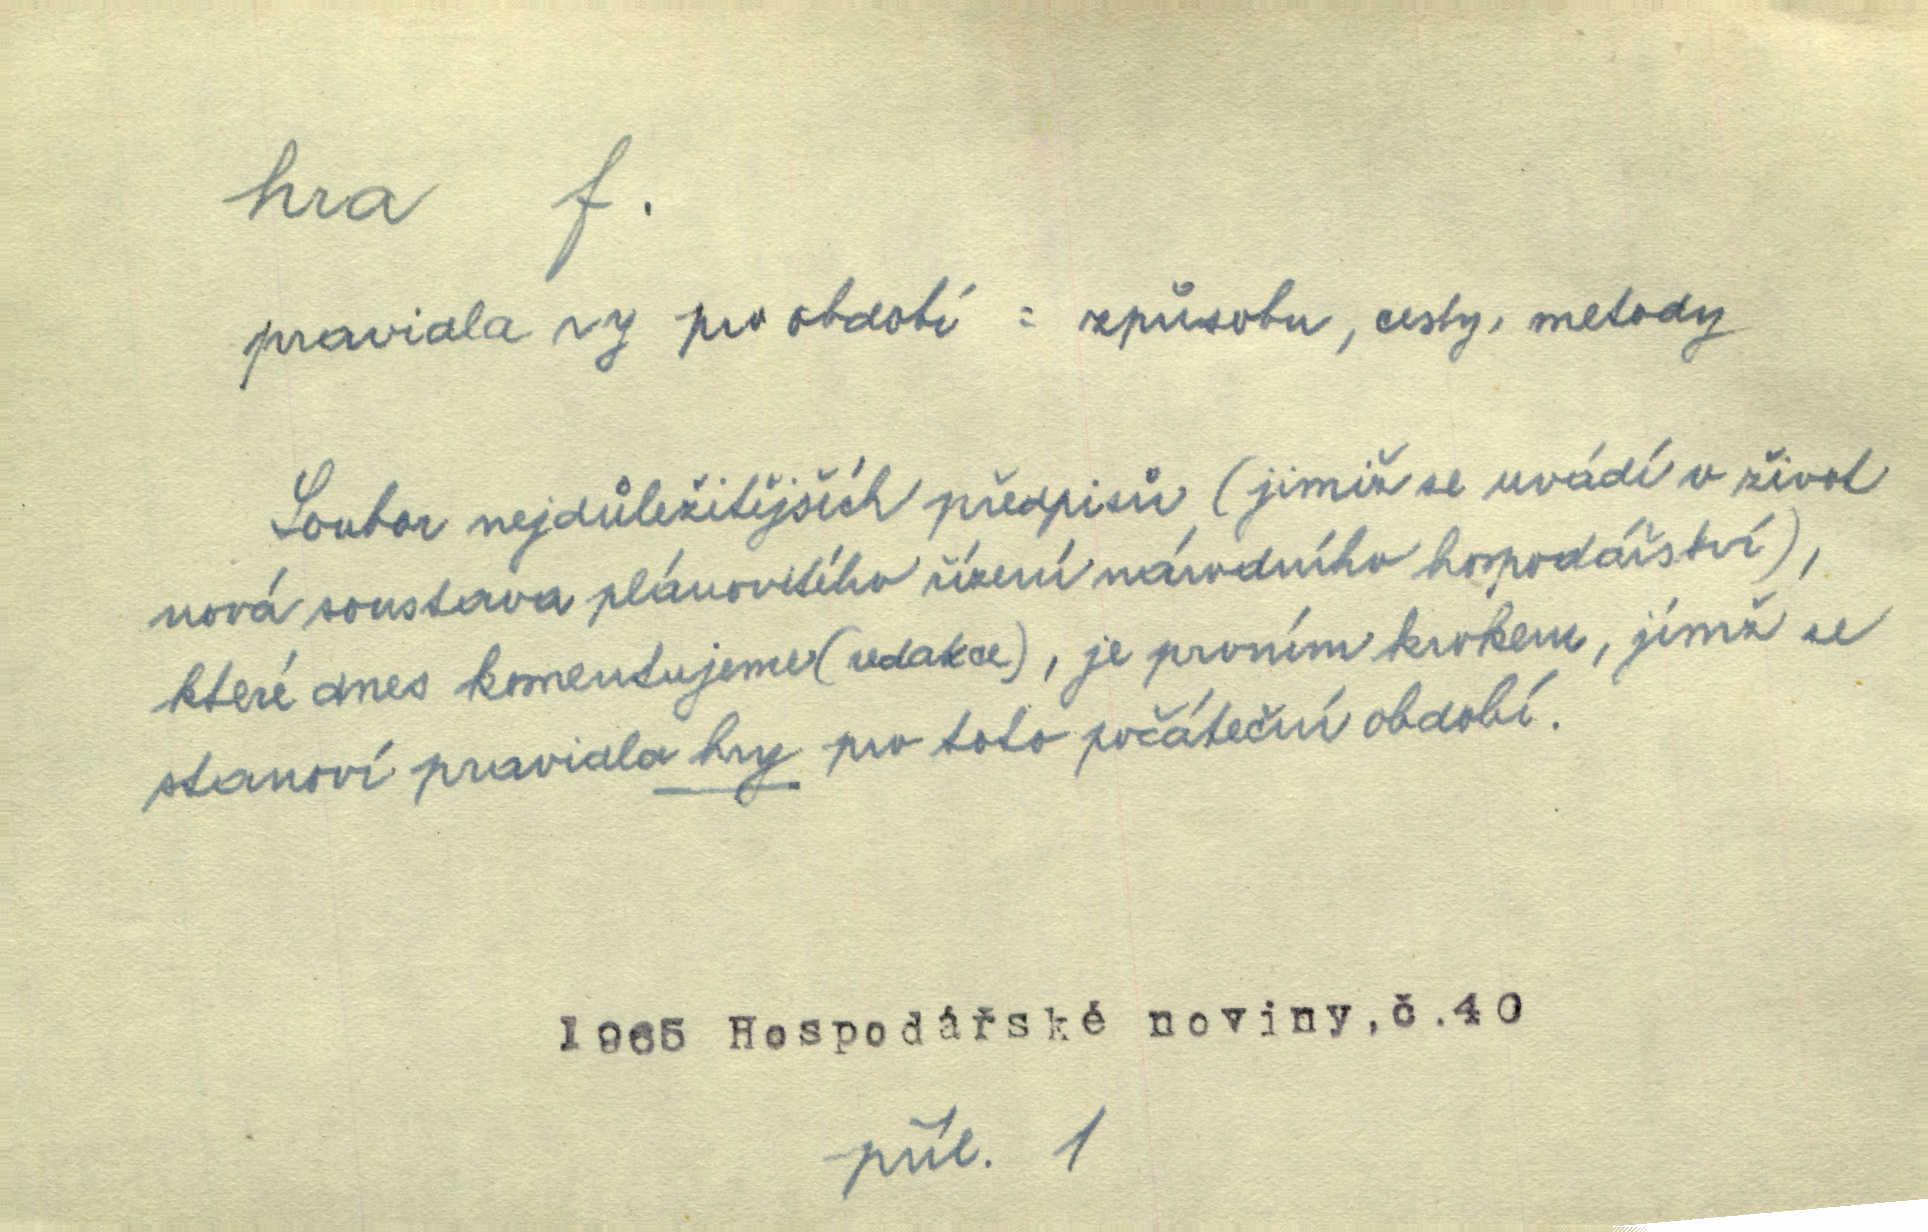 hra f.
pravidla ~y pro období = způsobu, cesty, metody
Soubor nejdůležitějších předpisů (jimiž se uvádí v život
nová soustava plánovitého řízení národního hospodářství),
které dnes komentujeme (redakce), je prvním krokem, jímž se
stanoví pravidla hry pro toto počáteční období.
1965 Hospodářské noviny,č.40
příl. 1